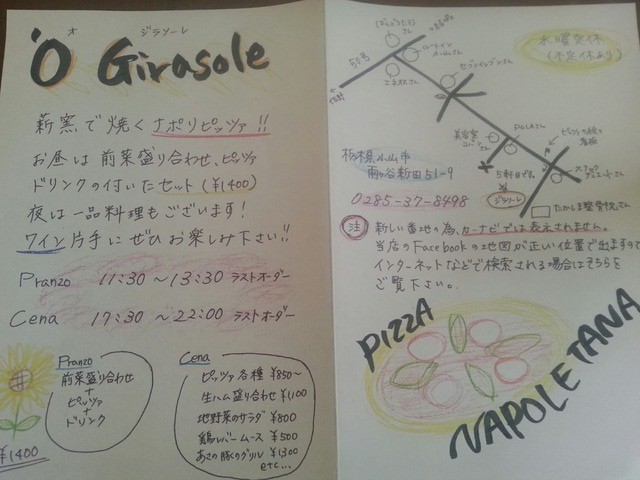 オ ジラソーレ
'O Girasole
薪窯で焼くナポリピッツァ!!
お昼は前菜盛り合わせ、ピッツァ
ドリンクの付いたセット(¥1400)
夜は一品料理もございます!
ワイン片手にぜひお楽しみ下さい!!
Pranzo 11:30 〜 13:30 ラストオーダー
Cena 17:30 〜 22:00 ラストオーダー
Pranzo
前菜盛り合わせ
+
ピッツァ
+
ドリンク
¥1400
Cena
ピッツァ各種 ¥850〜
生ハム盛り合わせ ¥1100
地野菜のサラダ ¥800
鶏レバームース ¥500
あさの豚のグリル ¥1300
etc...
水曜定休
(不定休あり)
50号
セブンイレブンさん
美容室
5軒目です。
ジラソーレ
たかしま整骨院さん
栃木県小山市
雨ヶ谷新田51-9
0285-37-8498
注 新しい番地の為、カーナビでは表示されません。
当店のFacebookの地図が正しい位置で出ますので
インターネットなどで検索される場合はそちらを
ご覧下さい。
PIZZA
NAPOLETANA